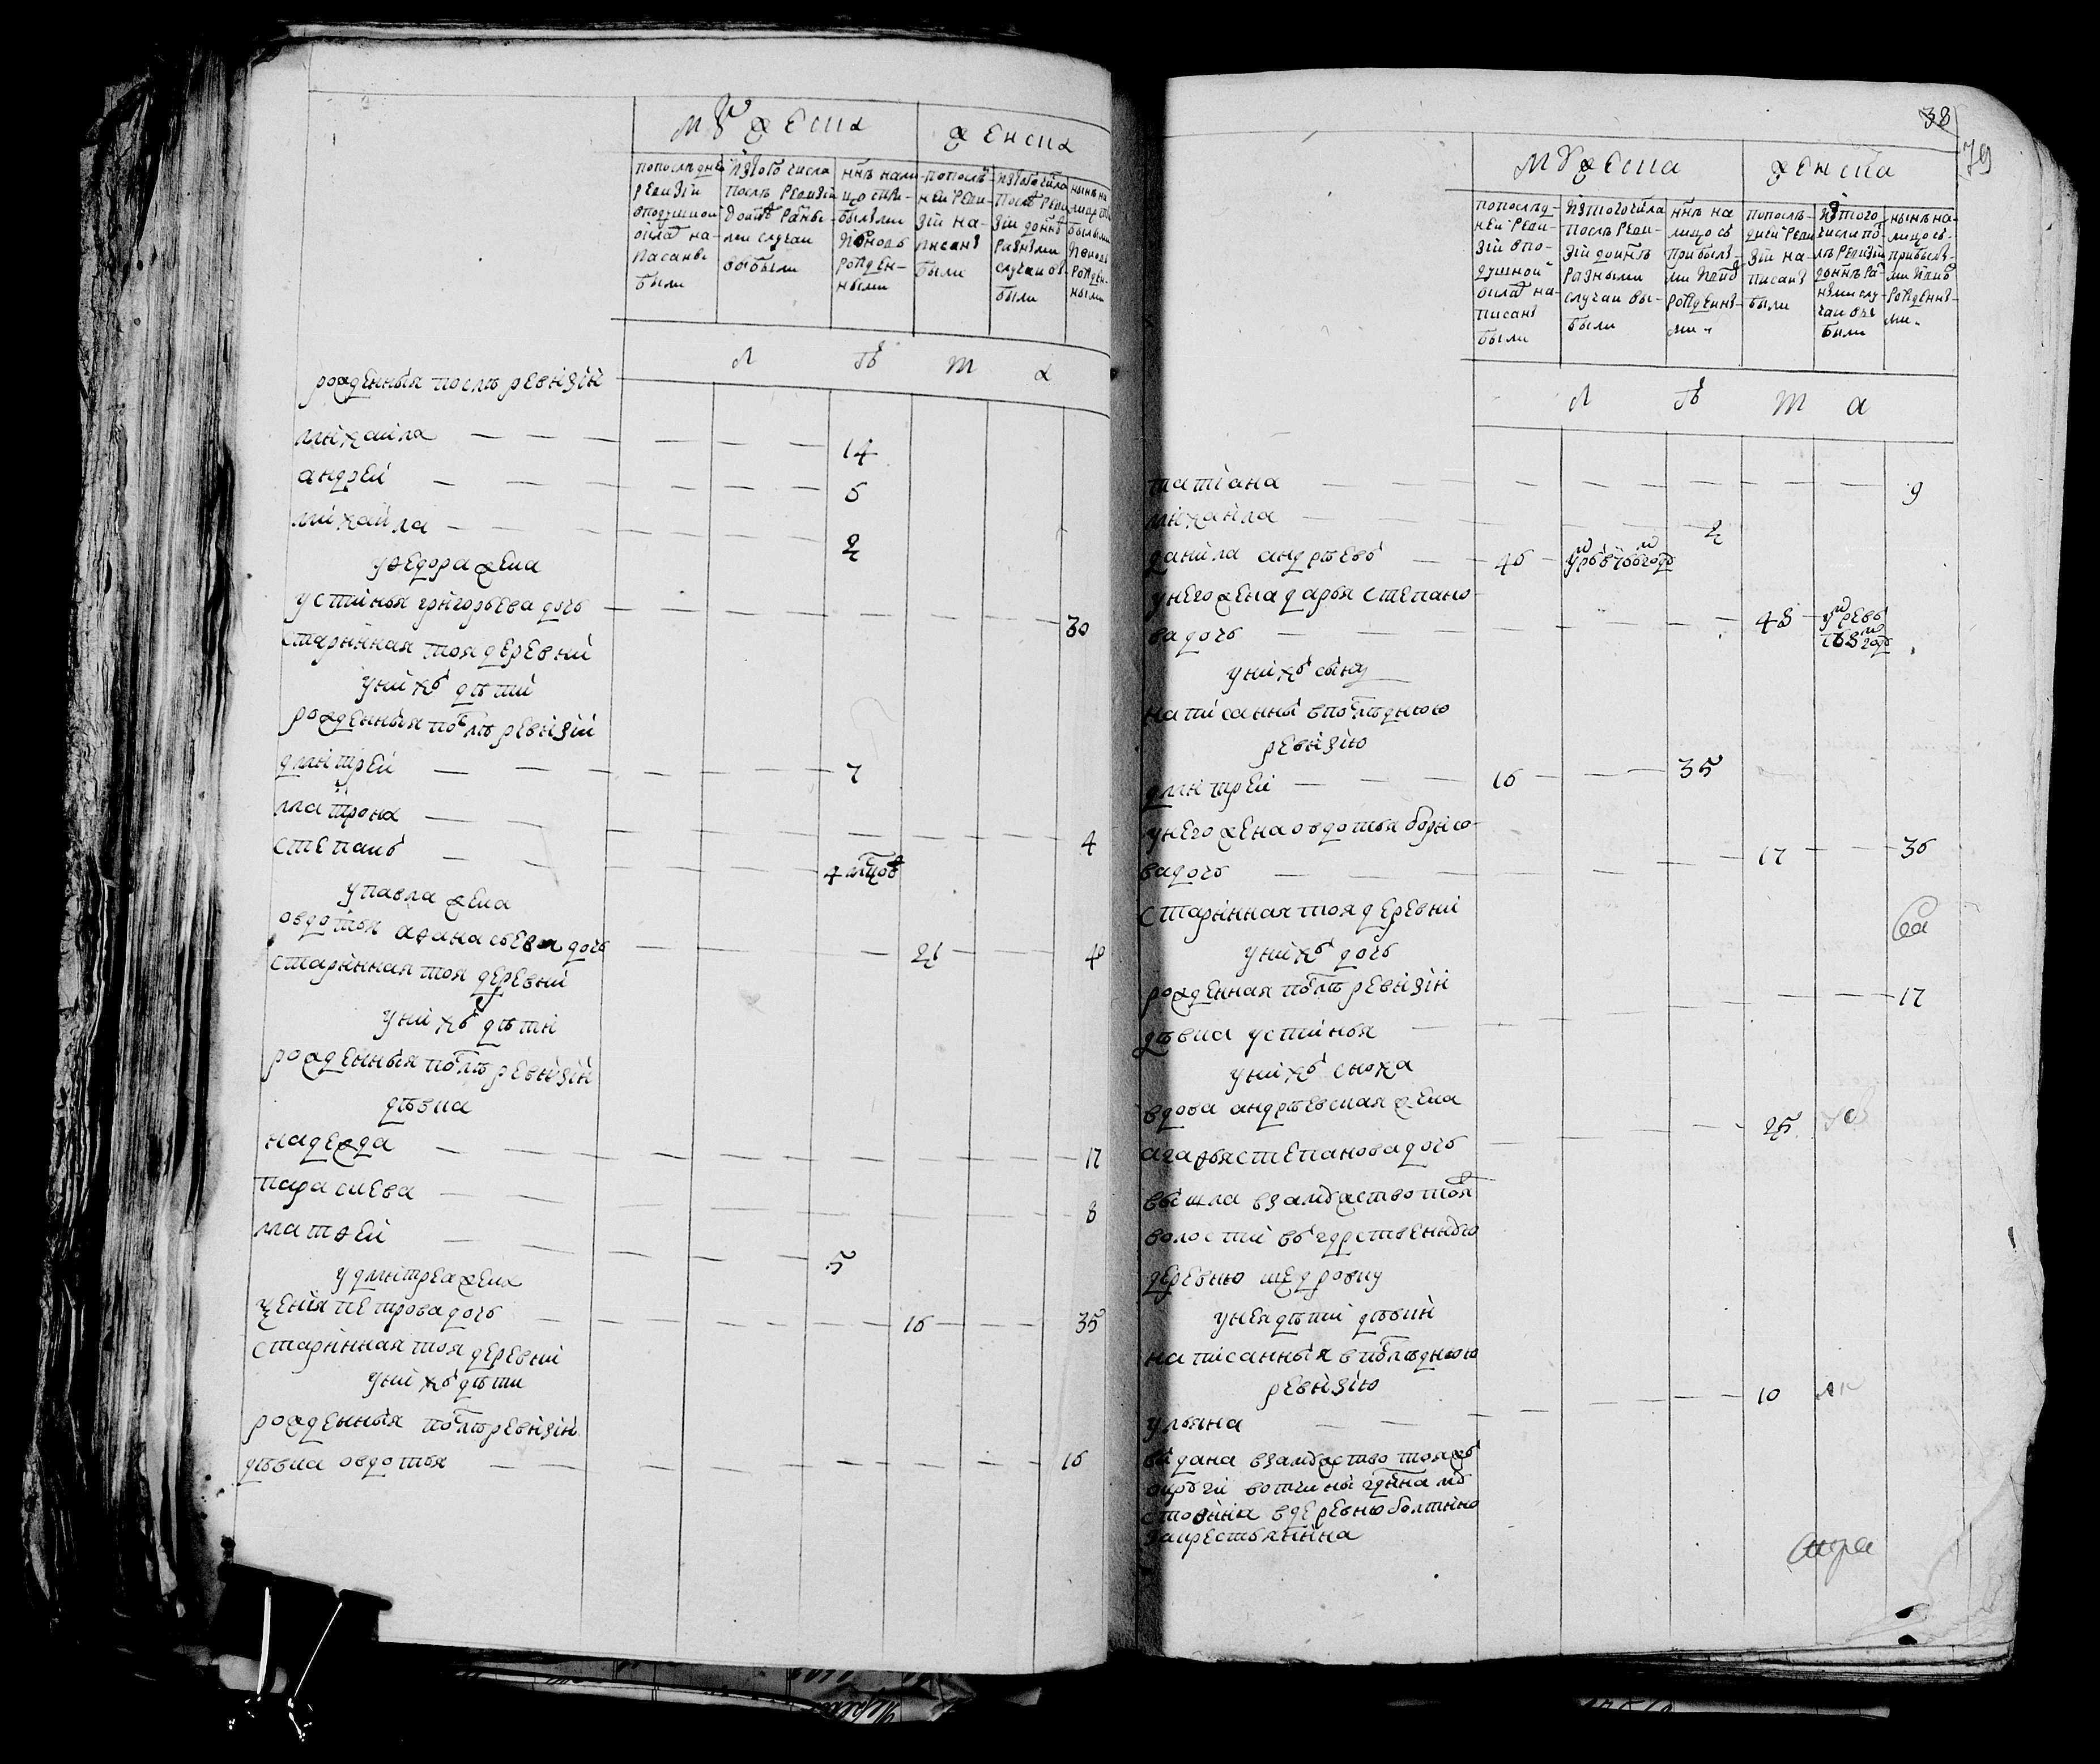 мужеска
женска
попослѣдне
ревизіи
вподушной
окладъ на-
писаны
были
изтого числа
послѣ ревизіи
донынѣ разны-
ми случаи
выбыли
ннѣ нали-
цо спри-
былыми
иновь
рожден-
ными
попослѣ-
ней реви-
зіи на-
писаны
были
изтого числа
послѣ реви
зіи донынѣ
разными
случаи вы-
были
нынѣ на
лицо спри
былыми
иновь
рожден-
ными
л ѣ т а
рожденныя послѣ ревизіи
михаила — — — — — — 14
андрей — — — — — — 5
михаила — — — — — 2
уѳедора жена
устинья григорьева дочь — — — — — — 30
старинная тоя деревни
унихъ дѣти
рожденныя послѣ ревизіи
дмитрей — — — — — — 7
матрона — — — — — — 4
степанъ — — — — 4 мцовъ
упавла жена
овдотья аѳанасьева дочь — — — — 21 — — 40
старинная тоя деревни
унихъ дѣти
рожденныя послѣ ревизіи
дѣвка
надежда — — — — — — 17
парасцева — — — — — — 8
матѳей — — — — 5
удмитрея жена
ѯенія петрова дочь — — — — 16 — — 35
старинная тоя деревни
унихъ дѣти
рожденныя послѣ ревизіи
дѣвка овдотья — — — — — — 16
38
79
мужеска
женска
попослѣд-
ней реви-
зіи впо-
душной
окладъ на-
писаны
были
изтогочисла
послѣ реви-
зіи донынѣ
разными
случаи вы-
были
ннѣ на
лицо съ
прибылы-
ми иновь
рожденны-
ми
попослѣ-
дней реви
зіи на-
писаны
были
изтого
числа по-
слѣ ревизіи
донынѣ ра-
ными слу-
чаи вы
были
нынѣ на-
лицо съ-
прибылы-
ми иновь
рожденны-
ми
л ѣ т а
татіана — — — — — — 9
михаила — — — — 2
данила андрѣевъ — 46 —
унего жена дарья степано-
ва дочь — — — — — 48
унихъ сынъ
написанны впослѣднюю
ревизію
дмитрей — — — 16 — — 35
унего жена овдотья борисо-
ва дочь — — — — 17 — — 36
старинная тоя деревни
унихъ дочь
рожденная послѣ ревизіи
дѣвка устинья — — — — — — 17
унихъ сноха
вдова андрѣевская жена
агаѳья степанова дочь — — — 25
вышла взамужство тоя
волости въ гдрственную
деревню щедровку
унея дѣти дѣвки
написанныя впослѣднюю
ревизію
ульяна — — — — — 10
выдана взамужство тояжъ
округи вотчины гдина
вдеревню болтино
закрестьянина